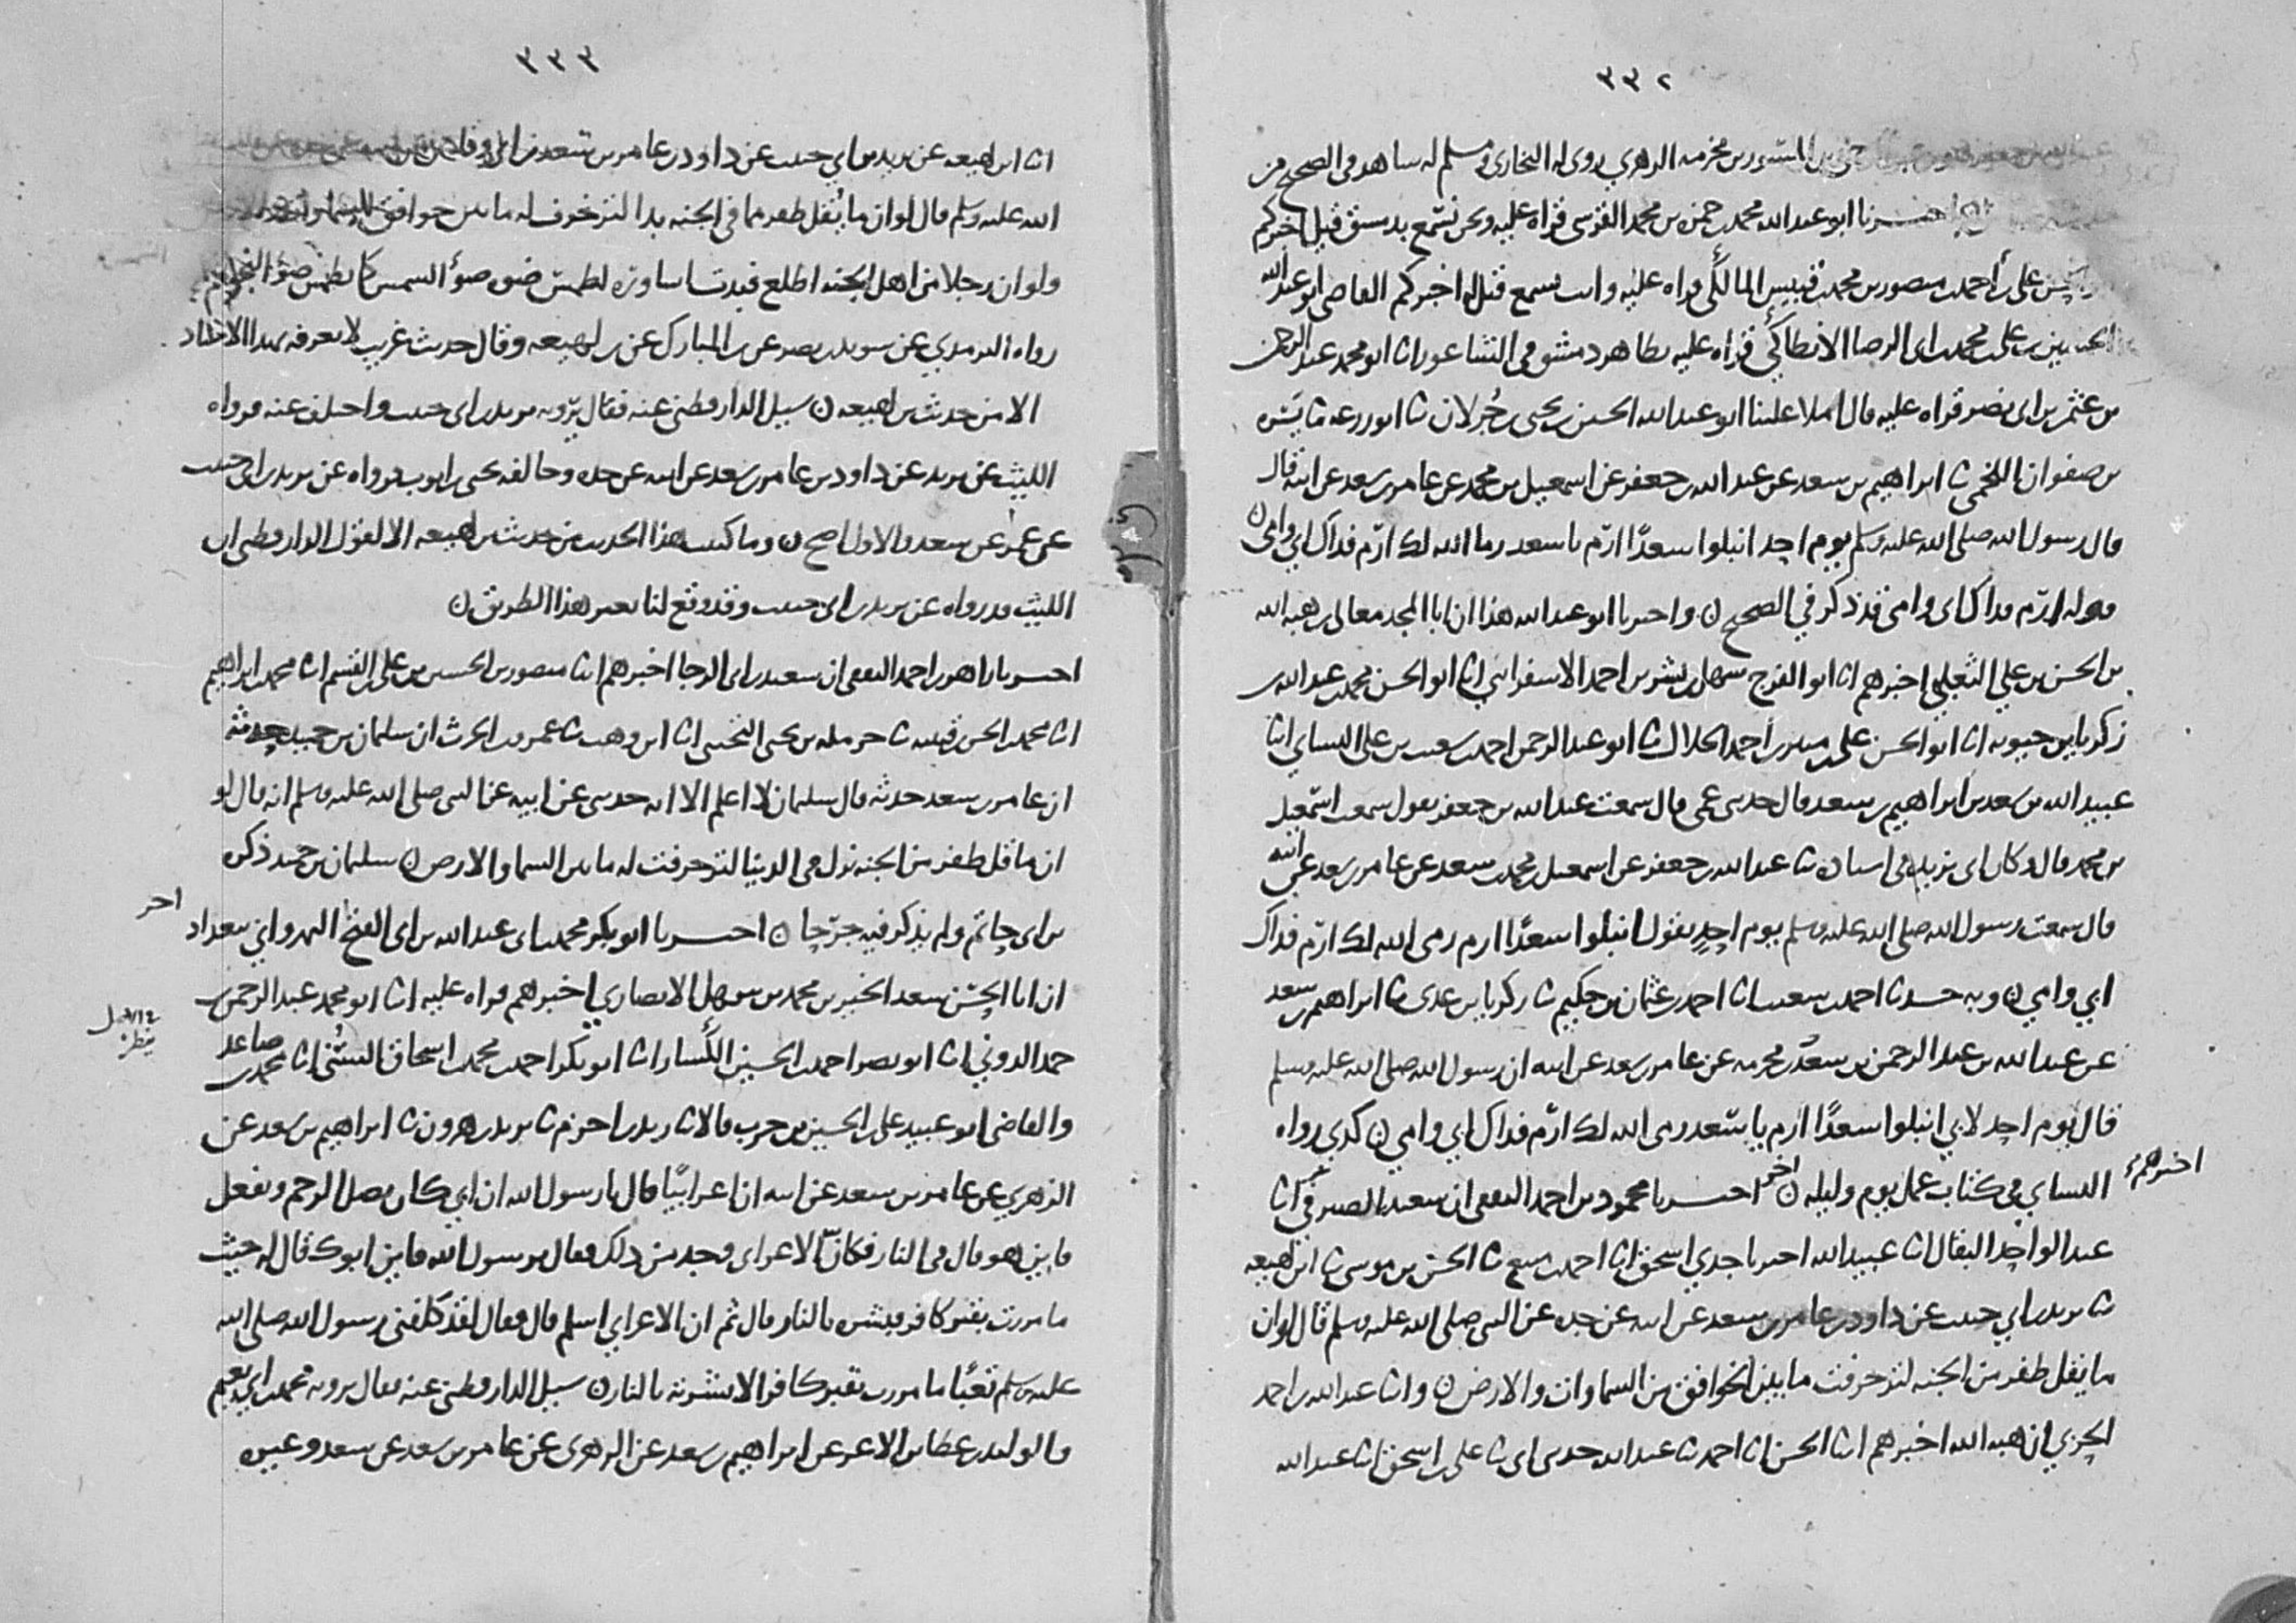 ٣٣٢
المسور بن مخرمه الزهري روى له البخاري ومسلم له شاهد في الصحيح من
اخبرنا ابو عبد الله محمد بن حمزه بن محمد القرشي قراه عليه ونحن نسمع بدمشق قيل له اخبركم
علي بن احمد بن منصور بن محمد بن قبيس المالكي قراه عليه وانت تسمع قيل له اخبركم القاضي ابو عبد الله
الحسين بن علي بن محمد بن ابي الرضا الانطاكي قراه عليه بظاهر دمشق في الشاغور انا ابو محمد عبد الرحمن
بن عثمن بن ابي نصر قراه عليه قال املا علينا ابو عبد الله الحسين بن يحيى بن جزلان ثنا ابو زرعه ثنا يسره
بن صفوان اللخمي ثنا ابراهيم بن سعد عن عبد الله بن جعفر عن اسمعيل بن محمد عن عامر بن سعد عن ابيه قال
قال رسول الله صلى الله عليه وسلم يوم احد انبلوا سعدًا ارم يا سعد رما الله لك ارم فداك ابي وامي ن
قوله ارم فداك ابي وامي قد ذكر في الصحيح ن واخبرنا ابو عبد الله هذا ان ابا المجد معالي بن هبه الله
بن الحسن بن علي الثعلبي اخبرهم انا ابو الفرج سهل بن بشر بن احمد الاسفرايني انا ابو الحسن محمد بن عبد الله بن
زكريا بن حيويه انا ابو الحسن علي بن منير بن احمد الخلال ثنا ابو عبد الرحمن احمد بن شعيب بن علي النساي انا
عبيد الله بن سعد بن ابراهيم بن سعد قال حدثني عمي قال سمعت عبد الله بن جعفر يقول سمعت اسمعيل
بن محمد قال وكان ابي عبد الله بن جعفر عن اسمعيل بن محمد بن سعد عن عامر بن سعد عن ابيه
قال سمعت رسول الله صلى الله عليه وسلم يوم احد يقول انبلوا سعدًا ارم رمى الله لك ارم فداك
ابي وامي ن وبه حدثنا احمد بن شعيب انا احمد بن عثمان بن حكيم ثنا زكريا بن عدي ثنا ابراهيم بن سعد
عن عبد الله بن عبد الرحمن بن سعد بن مخرمه عن عامر بن سعد عن ابيه ان رسول الله صلى الله عليه وسلم
قال يوم احد لابي انبلوا سعدًا ارم يا سعد رمى الله لك ارم فداك ابي وامي ن كذي رواه
النساي في كتاب عمل يوم وليله ن اخبرنا محمود بن احمد الثقفي ان سعيد الصيرفي انا
اخبرهم
عبد الواحد البقال انا عبيد الله اخبرنا جدي اسحق انا احمد بن منيع ثنا الحسن بن موسى ثنا ابن لهيعه
ثنا يزيد بن ابي حبيب عن داود بن عامر بن سعد عن ابيه عن جده عن النبي صلى الله عليه وسلم قال لو ان
ما يقل ظفر من الجنه لتزخرفت ما بين الخوافق من السماوات والارض ن وانا عبد الله بن احمد
الحربي ان هبه الله اخبرهم انا الحسن انا احمد ثنا عبد الله حدثني ابي ثنا علي بن اسحق انا عبد الله
٣٣٣
انا ابن لهيعه عن يزيد بن ابي حبيب عن داود بن عامر بن سعد بن ابي وقاص
الله عليه وسلم قال لو ان ما يُقل ظفر مما في الجنه بدا لتزخرف له ما بين خوافق السماوات
ولو ان رجلا من اهل الجنه اطلع فبدت اساوره لطمس ضوه ضوء الشمس كما تطمس ضوء النجوم
رواه الترمذي عن سويد بن نصر عن بن المبارك عن بن لهيعه وقال حديث غريب لا نعرفه بهذا الاسناد
الا من حديث بن لهيعه ن سيل الدارقطني عنه فقال يرويه يزيد بن ابي حبيب واختلف عنه فرواه
الليث عن يزيد عن داود بن عامر بن سعد عن ابيه عن جده وخالفه يحيى بن ايوب فرواه عن يزيد بن ابي حبيب
عن عمر عن سعد والاول اصح ن وما كتبت هذا الحديث من حديث بن لهيعه الا لقول الدارقطني ان
الليث قد رواه عن يزيد بن ابي حبيب وقد وقع لنا بغير هذا الطريق ن
اخبرنا زاهر بن احمد الثقفي ان سعيد بن ابي الرجا اخبرهم انا منصور بن الحسين بن علي بن القسم انا محمد بن ابراهيم
انا محمد بن الحسن بن قتيبه ثنا حرمله بن يحيى التجيبي انا ابن وهب ثنا عمرو بن الحرث ان سليمان بن حميد حدثه
ان عامر بن سعد حدثه قال سليمان لا اعلم الا انه حدثني عن ابيه عن النبي صلى الله عليه وسلم انه قال لو
ان ما قل ظفر من الجنه نزل في الدنيا لتزخرفت له ما بين السما والارض ن سليمان بن حميد ذكره
بن ابي حاتم ولم يذكر فيه جرحا ن اخبرنا ابو بكر محمد بن ابي عبد الله بن ابي الفتح النهرواني ببغداد
اخر
ان ابا الحسن سعد الخير بن محمد بن سهل الانصاري اخبرهم قراه عليه انا ابو محمد عبد الرحمن بن
حمد الدوني انا ابو نصر احمد بن الحسين الكسار انا ابو بكر احمد بن محمد بن اسحاق السني انا محمد بن صاعد
والقاضي ابو عبيد علي بن الحسين بن حرب قالا ثنا زيد بن اخزم ثنا يزيد بن هرون ثنا ابراهيم بن سعد عن
الزهري عن عامر بن سعد عن ابيه ان اعرابيًا قال يا رسول الله ان ابي كان يصل الرحم ويفعل
فاين هو قال في النار فكان الاعرابي وجد من ذلك فقال يا رسول الله فاين ابوك قال له حيث
ما مررت بقبر كافر فبشره بالنار قال ثم ان الاعرابي اسلم قال فقال لقد كلفني رسول الله صلى الله
عليه وسلم تعبًا ما مررت بقبر كافر الا بشرته بالنار ن سيل الدارقطني عنه فقال يرويه محمد بن ابي نعيم
والوليد بن عطا بن الاغر عن ابراهيم بن سعد عن الزهري عن عامر بن سعد عن سعد وغيره